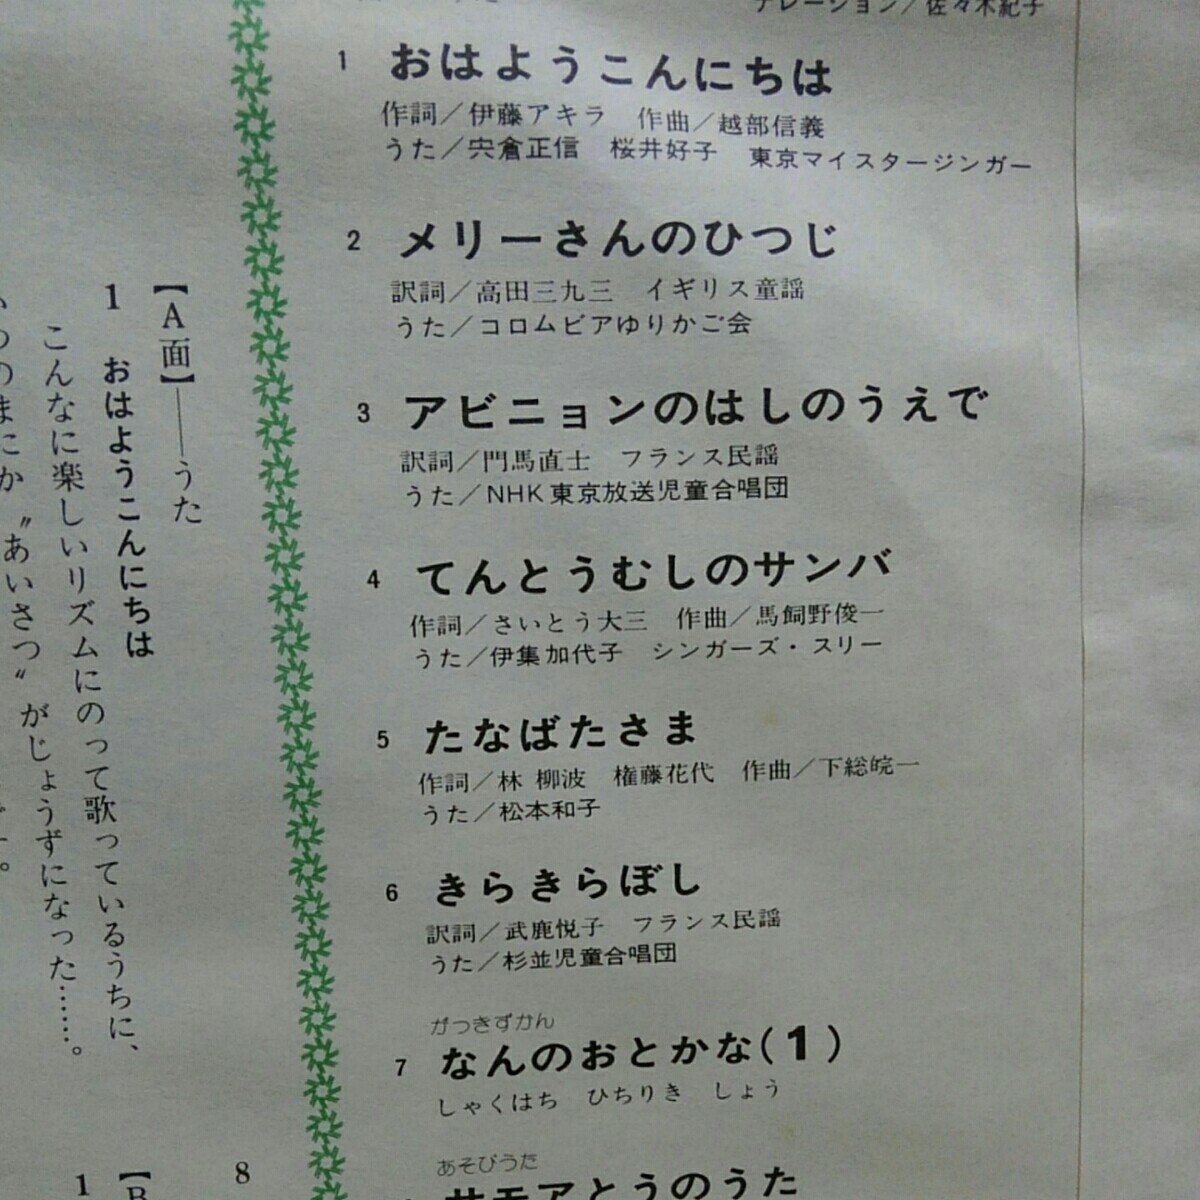 ナレーション／佐々木紀子
1 おはようこんにちは
作詞／伊藤アキラ 作曲／越部信義
うた／宍倉正信 桜井好子 東京マイスタージンガー
2 メリーさんのひつじ
訳詞／高田三九三 イギリス童謡
うた／コロムビアゆりかご会
3 アビニョンのはしのうえで
訳詞／門馬直士 フランス民謡
うた／NHK東京放送児童合唱団
4 てんとうむしのサンバ
作詞／さいとう大三 作曲／馬飼野俊一
うた／伊集加代子 シンガーズ・スリー
5 たなばたさま
作詞／林 柳波 権藤花代 作曲／下総皖一
うた／松本和子
6 きらきらぼし
訳詞／武鹿悦子 フランス民謡
うた／杉並児童合唱団
がつきずかん
7 なんのおとかな(1)
しゃくはち ひちりき しょう
あそびうた
サモアとうのうた
【A面】——うた
1 おはようこんにちは
こんなに楽しいリズムにのって歌っているうちに、
いつのまにか〝あいさつ〟がじょうずになった……。
8
【B
1